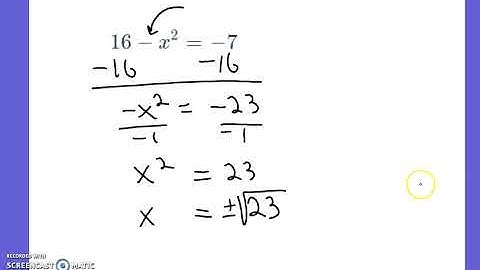 16 − x² = −7
−16 −16
−x² = −23
−1 −1
x² = 23
x = ±√23
RECORDED WITH
SCREENCAST MATIC